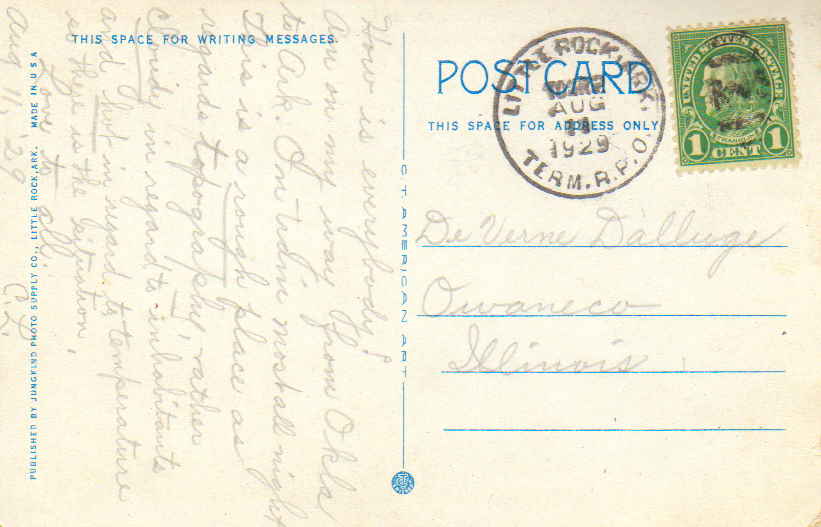 THIS SPACE FOR WRITING MESSAGES.
How is everybody?
Am on my way from Okla
to Ark. most all night
This is a rough place as
regards topography, rather
in regard to inhabitants
and hot in regard to temperature
so there is the situation.
Love to all,
C.L.
Aug 11, '29
PUBLISHED BY JUNGKIND PHOTO SUPPLY CO., LITTLE ROCK, ARK. MADE IN U S A
C.T. AMERICAN ART
POST CARD
THIS SPACE FOR ADDRESS ONLY
LITTLE ROCK, ARK.
AUG
11
1929
TERM. R.P.O.
UNITED STATES POSTAGE
FRANKLIN
1 CENT 1
De Verne Dalluge
Owaneco
Illinois